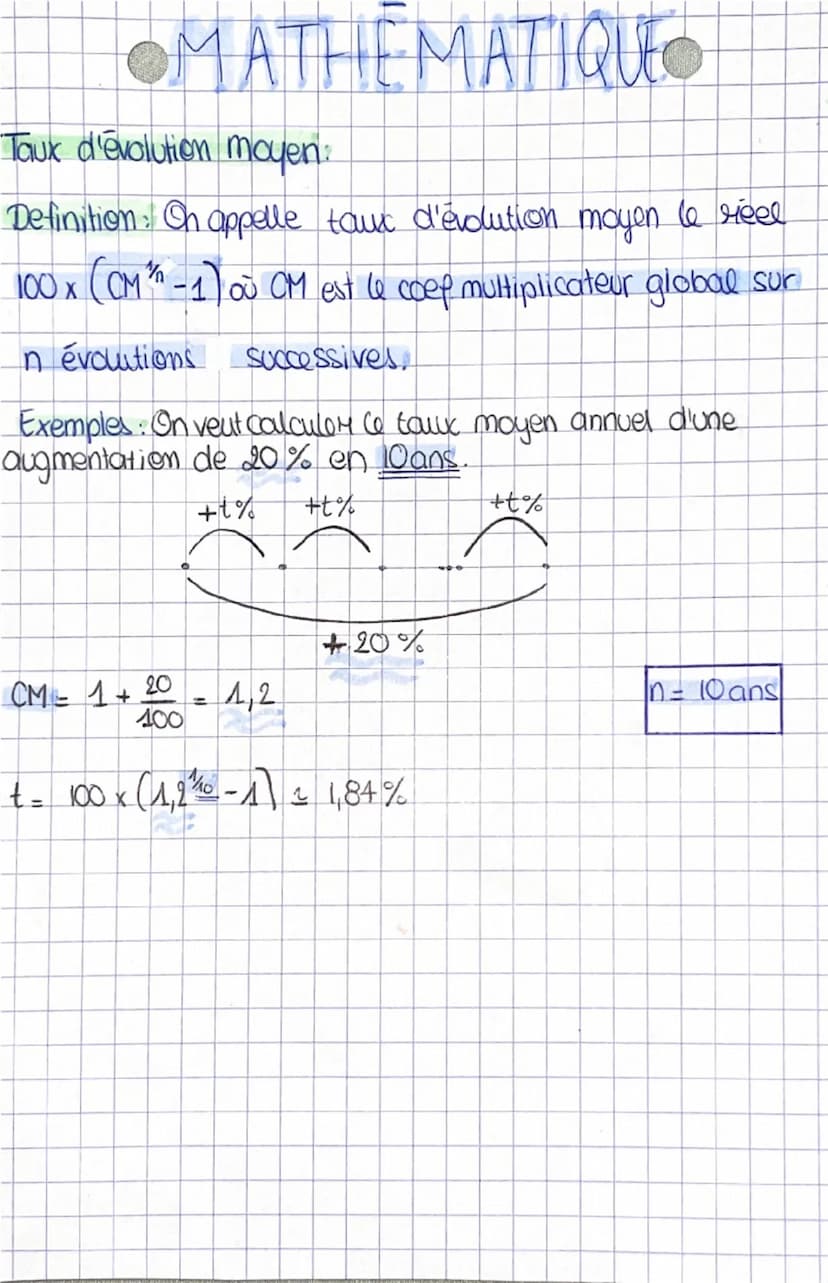 MATHÉMATIQUE
Taux d'évolution moyen:
Definition: On appelle taux d'évolution moyen le réel
100 x (CM^1/n - 1) où CM est le coef multiplicateur global sur
n évolutions successives.
Exemples: On veut calculer le taux moyen annuel d'une
augmentation de 20% en 10ans.
+t% +t% +t%
...
+ 20%
CM = 1 + 20/100 = 1,2
n = 10ans
t = 100 x (1,2^1/10 - 1) ≃ 1,84%